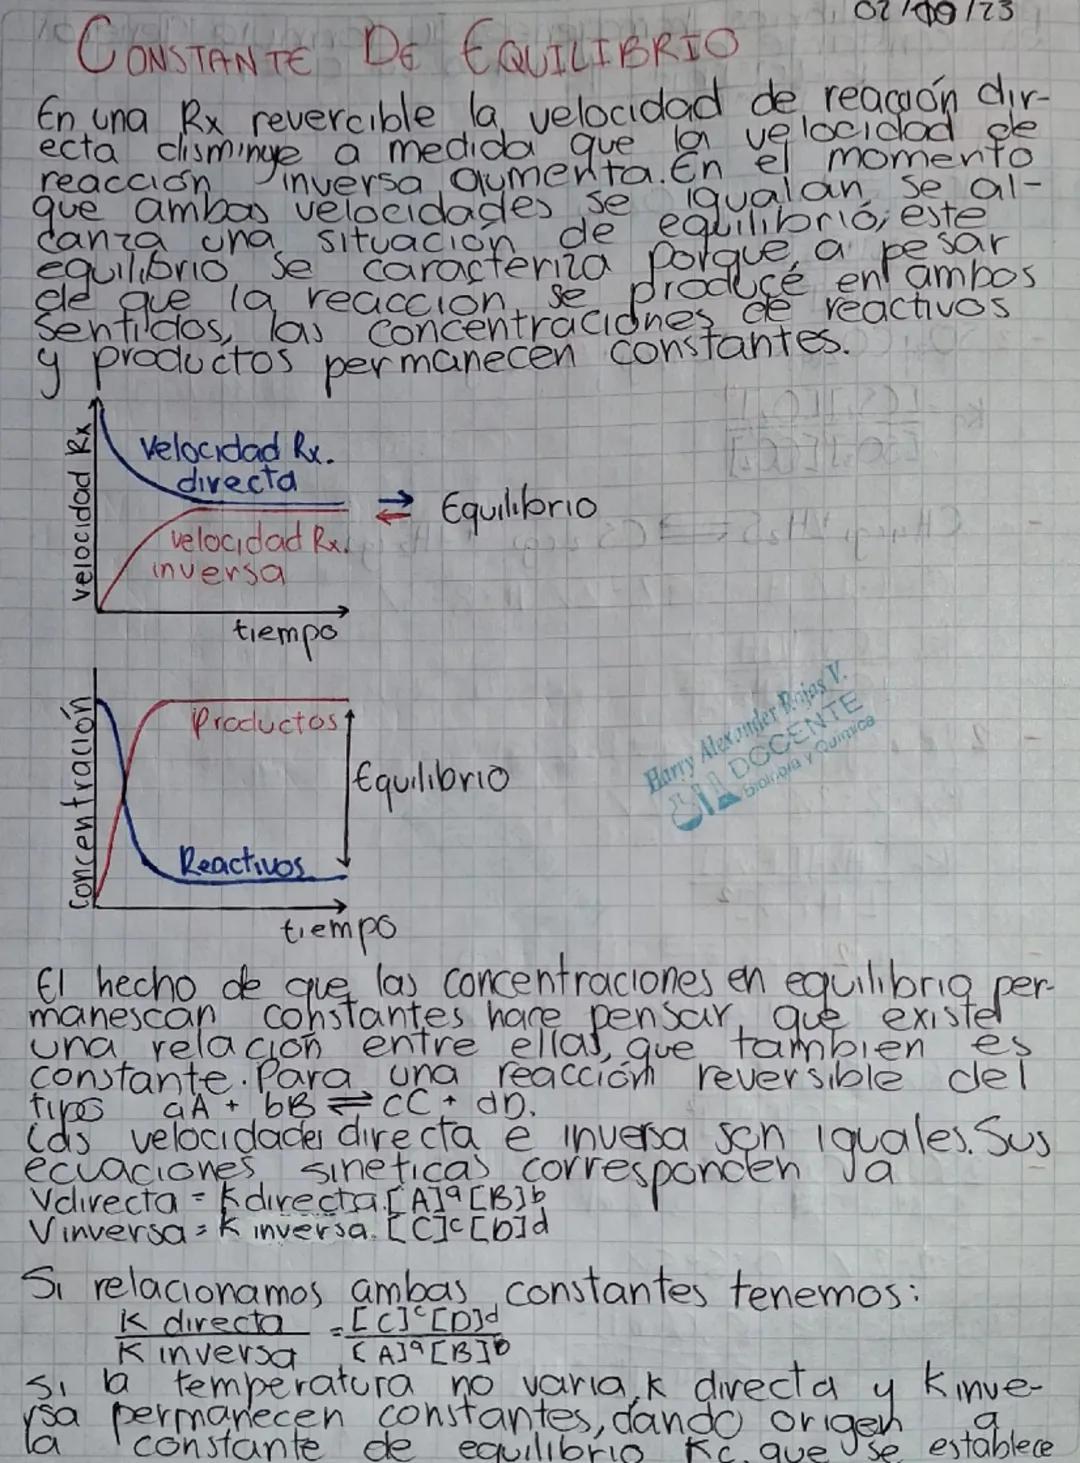 CONSTANTE DE EQUILIBRIO
En una Rx revercible la velocidad de reacción dir-
ecta disminuye a medida que la velocidad de
reacción inversa aumenta. En el momento
que ambas velocidades se igualan, se al-
canza una situación de equilibrio, este
equilibrio se caracteriza porque, a pesar
de que la reacción se produce en ambos
sentidos, las concentraciones de reactivos
y productos permanecen constantes.
velocidad Rx
velocidad Rx.
directa
Equilibrio
velocidad Rx.
inversa
tiempo
Concentración
Productos
Equilibrio
Reactivos
tiempo
Harry Alexander Rojas V.
DOCENTE
Biología y Química
El hecho de que las concentraciones en equilibrio per-
manescan constantes hace pensar que existe
una relación entre ellas, que tambien es
constante. Para una reacción reversible del
tipos aA + bB ⇌ cC + dD.
Las velocidades directa e inversa son iguales. Sus
ecuaciones sineticas corresponden a
Vdirecta = Kdirecta.[A]ᵃ[B]b
Vinversa = K inversa.[C]ᶜ[D]d
Si relacionamos ambas constantes tenemos:
K directa = [C]ᶜ[D]ᵈ
K inversa [A]ᵃ[B]ᵇ
Si la temperatura no varia, K directa y Kinve-
rsa permanecen constantes, dando origen a
la constante de equilibrio Kc, que se establece